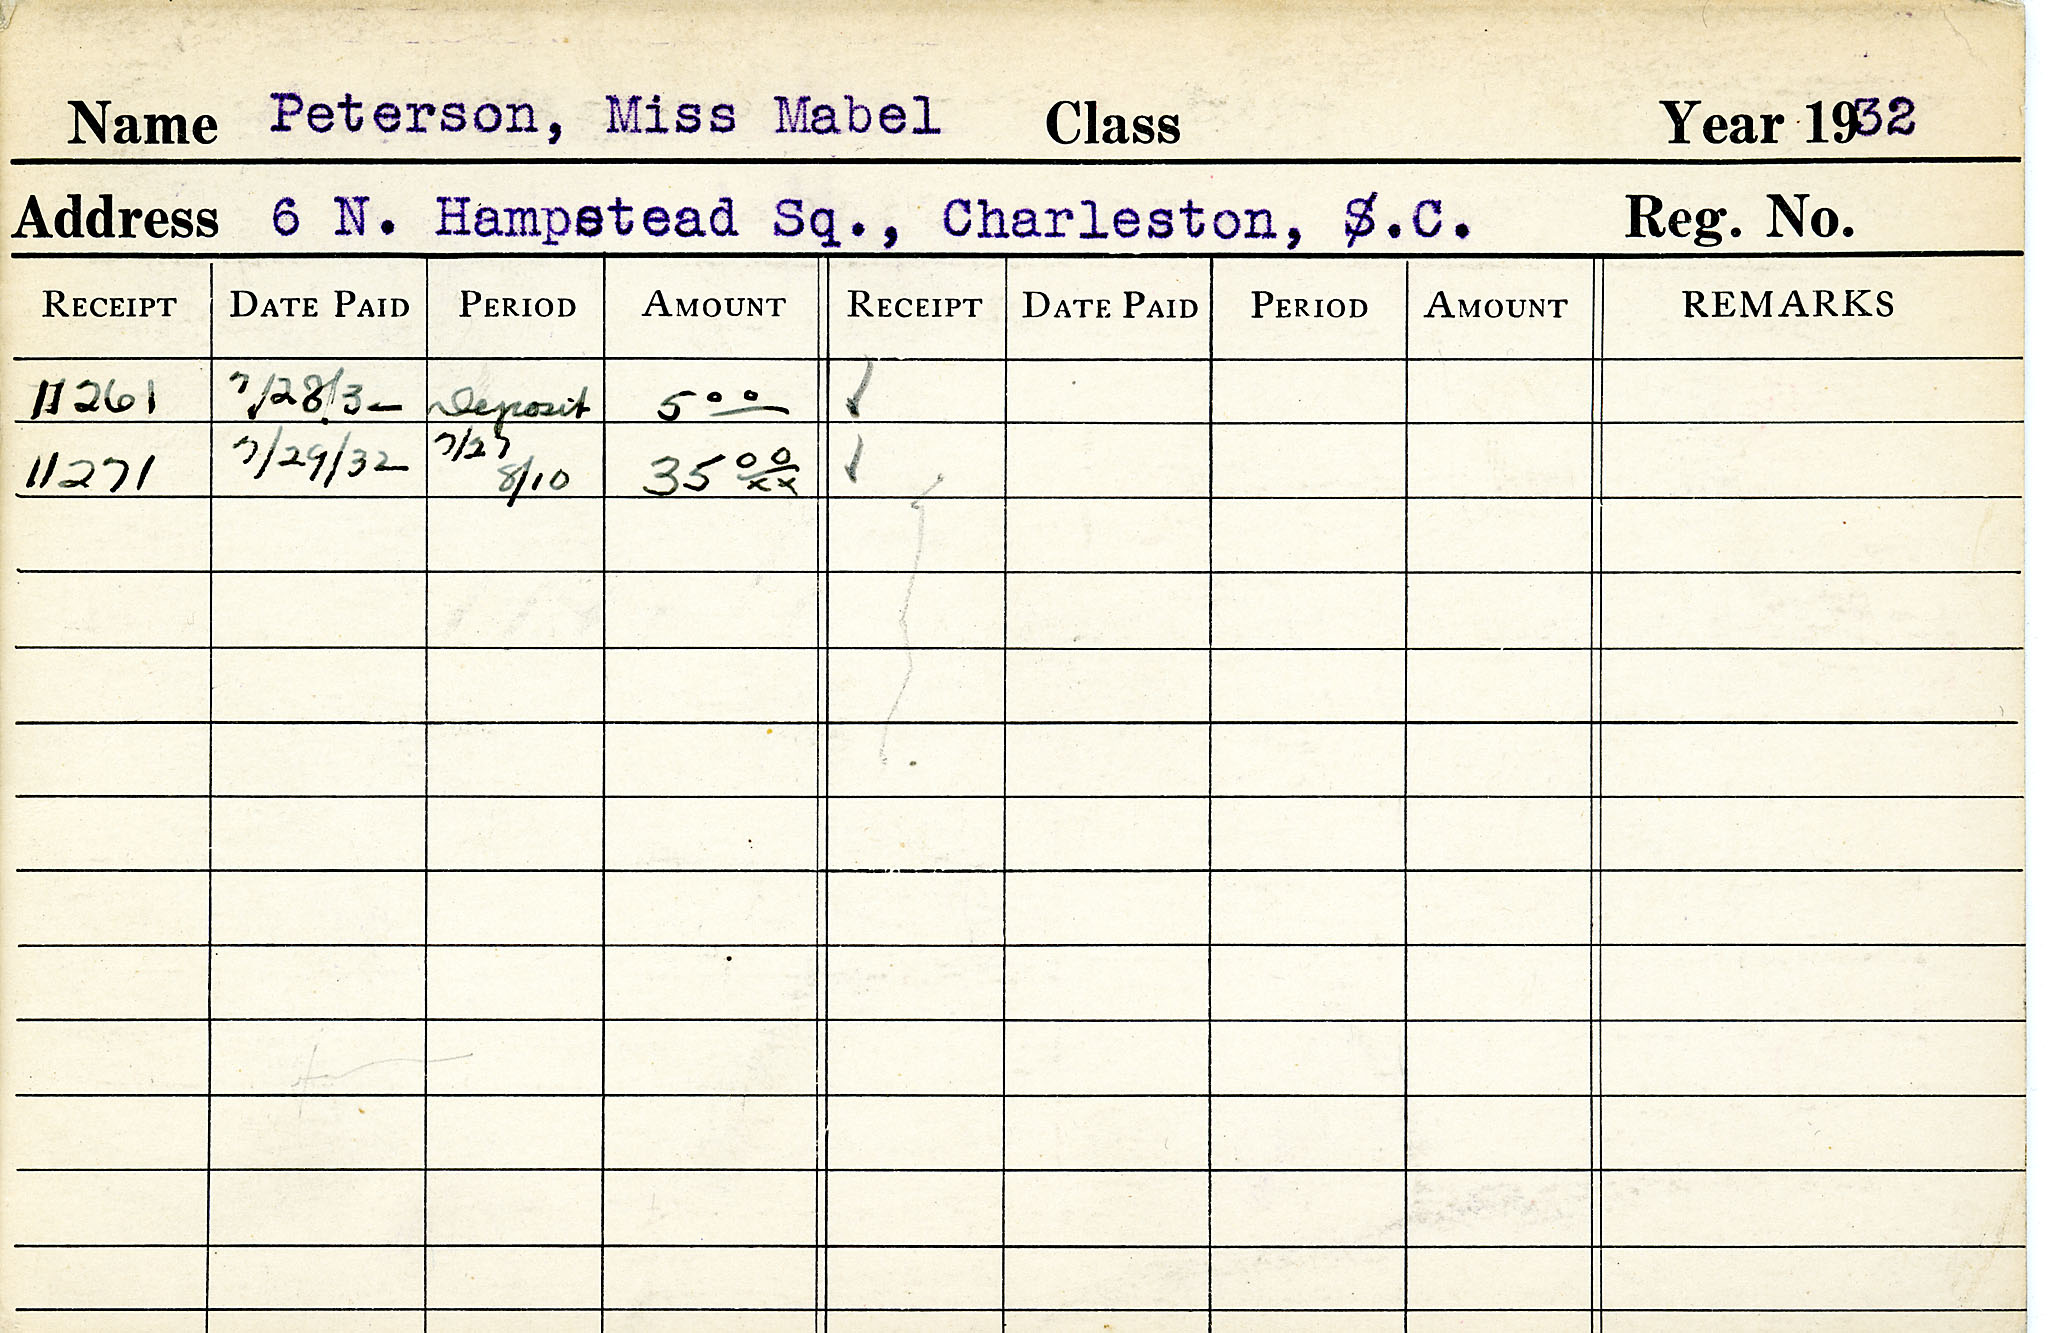 Name Peterson, Miss Mabel Class Year 1932
Address 6 N. Hampstead Sq., Charleston, S.C. Reg. No.
RECEIPT DATE PAID PERIOD AMOUNT RECEIPT DATE PAID PERIOD AMOUNT REMARKS
11261 7/28/32 Deposit 5 00
11271 7/29/32 7/27 8/10 35 00/xx